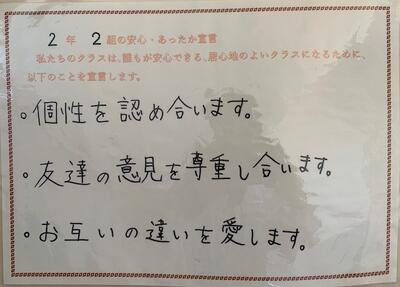 2年 2組の安心・あったか宣言
私たちのクラスは、誰もが安心できる、居心地のよいクラスになるために、
以下のことを宣言します。
。個性を認め合います。
。友達の意見を尊重し合います。
。お互いの違いを愛します。